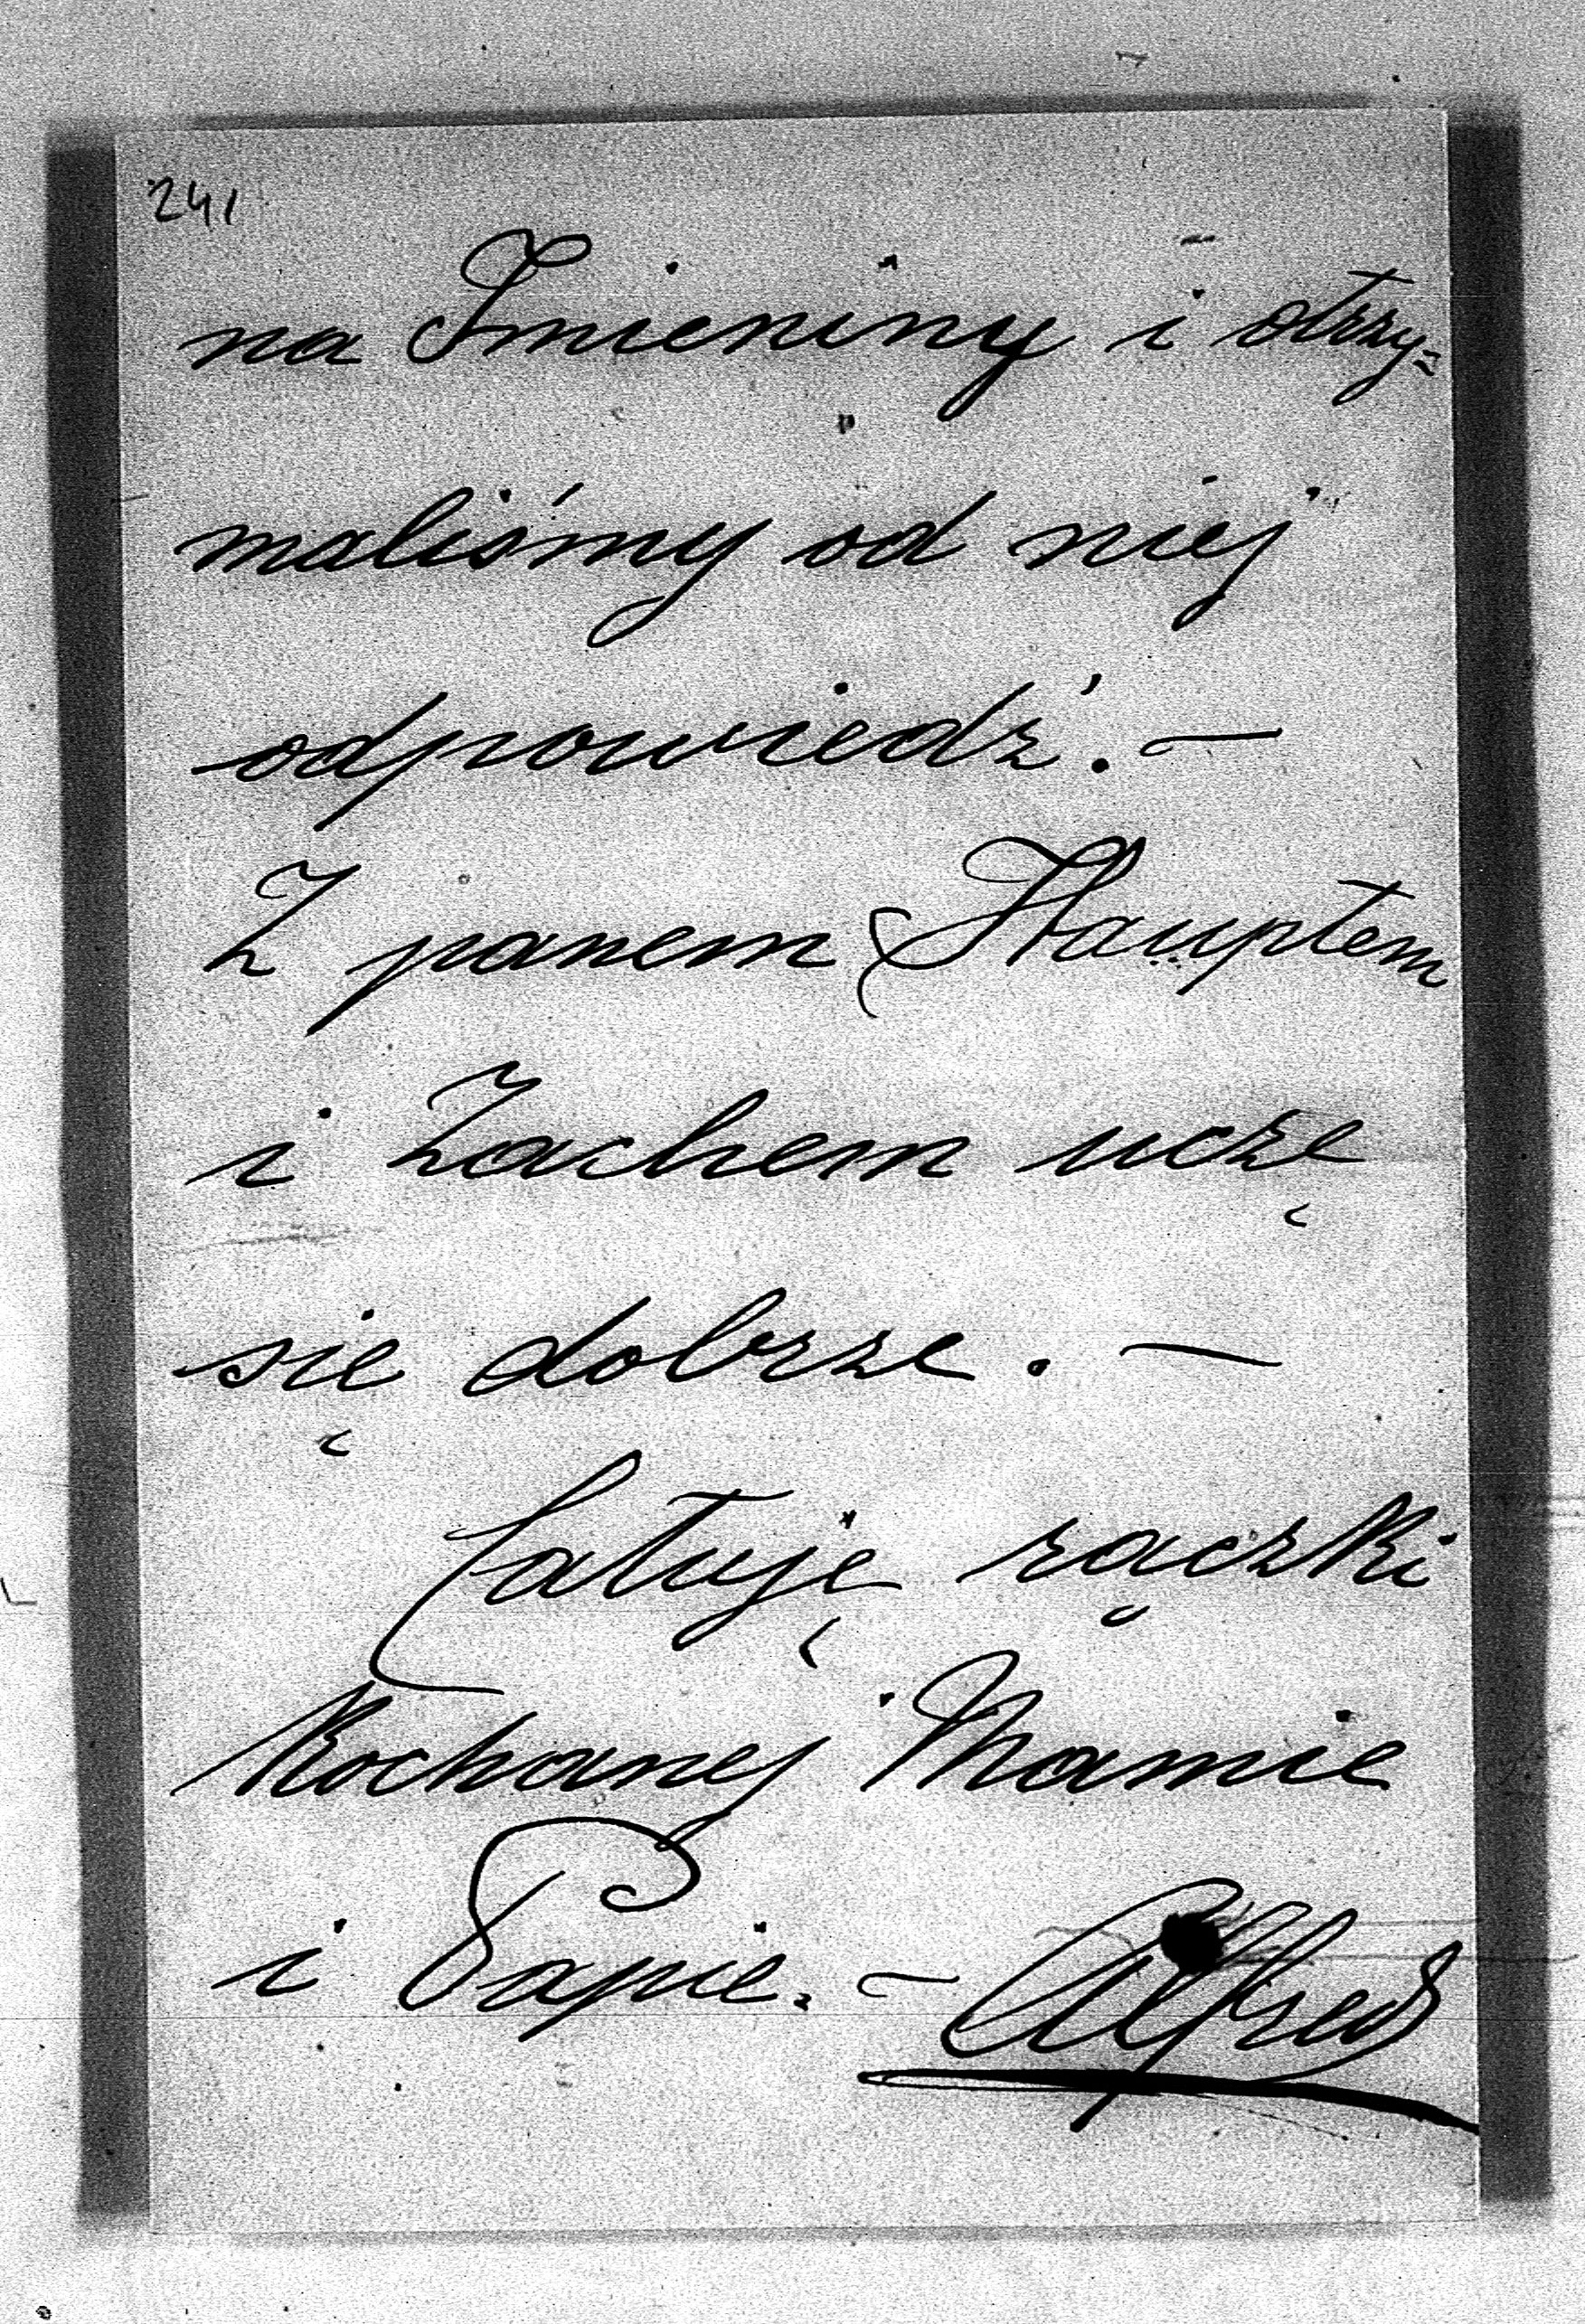 241
na Imieniny i otrzy=
maliśmy od niej
odpowiedź. —
Z panem Hauptem
i Zachem uczę
się dobrze. —
Całuję rączki
Kochanej Mamie
i Papie. — Alfred